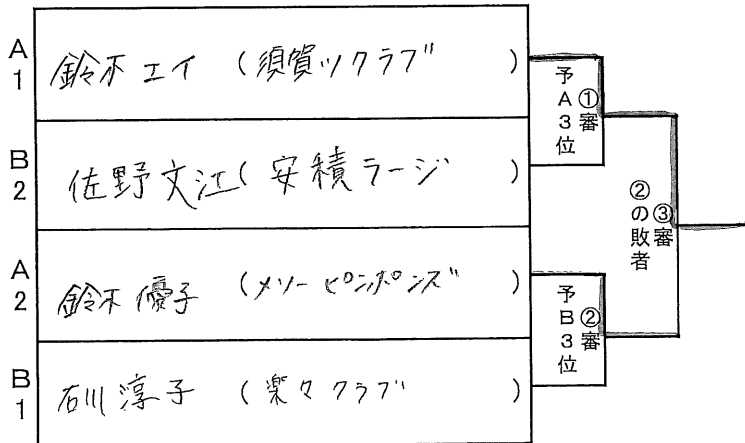 A1 鈴木エイ (須賀ツクラブ)
B2 佐野文江 (安積ラージ)
A2 鈴木優子 (メソーピンポンズ)
B1 石川淳子 (楽々クラブ)
①審
予A3位
②審
予B3位
③審
②の敗者